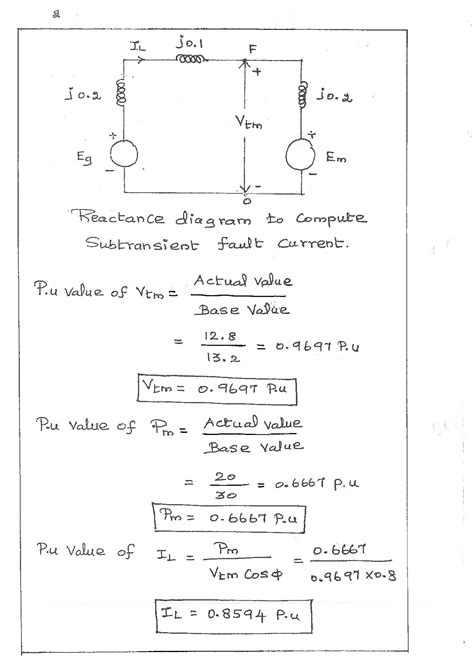 2
IL j0.1 F
+
j0.2 j0.2
Vtm
+ +
Eg Em
- -
-
0
Reactance diagram to compute
Subtransient fault current.
P.u value of Vtm = Actual value
Base value
= 12.8 = 0.9697 P.u
13.2
Vtm = 0.9697 P.u
P.u value of Pm = Actual value
Base value
= 20 = 0.6667 P.u
30
Pm = 0.6667 P.u
P.u value of IL = Pm = 0.6667
Vtm cosϕ 0.9697 x0.8
IL = 0.8594 P.u